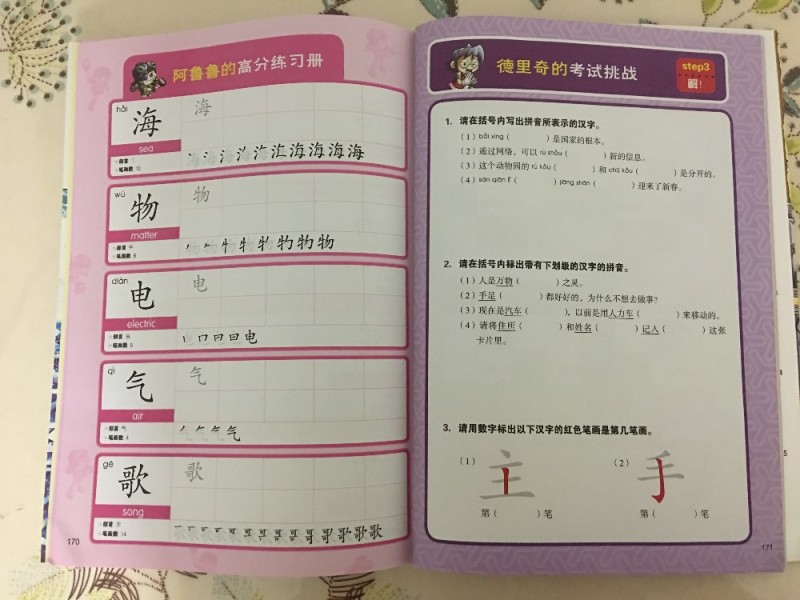 阿鲁鲁的高分练习册
hǎi
海
海
sea
部首
笔画数 10
wù
物
物
matter
部首 牛
笔画数 8
diàn
电
电
electric
部首
笔画数 5
qì
气
气
air
部首 气
笔画数 4
gē
歌
歌
song
部首 欠
笔画数 14
170
德里奇的考试挑战
step3
解!
1. 请在括号内写出拼音所表示的汉字。
(1) bǎi xìng ( ) 是国家的根本。
(2) 通过网络,可以 rù shǒu ( ) 新的信息。
(3) 这个动物园的 rù kǒu ( ) 和 chū kǒu ( ) 是分开的。
(4) sān qiān lǐ ( ) jiāng shān ( ) 迎来了新春。
2. 请在括号内标出带有下划线的汉字的拼音。
(1) 人是万物 ( ) 之灵。
(2) 手足 ( ) 都好好的,为什么不想去做事?
(3) 现在是汽车 ( ),以前是用人力车 ( ) 来移动的。
(4) 请将住所 ( ) 和姓名 ( ) 记入 ( ) 这张
卡片里。
3. 请用数字标出以下汉字的红色笔画是第几笔画。
(1) 主
(2) 手
第 ( ) 笔
第 ( ) 笔
171